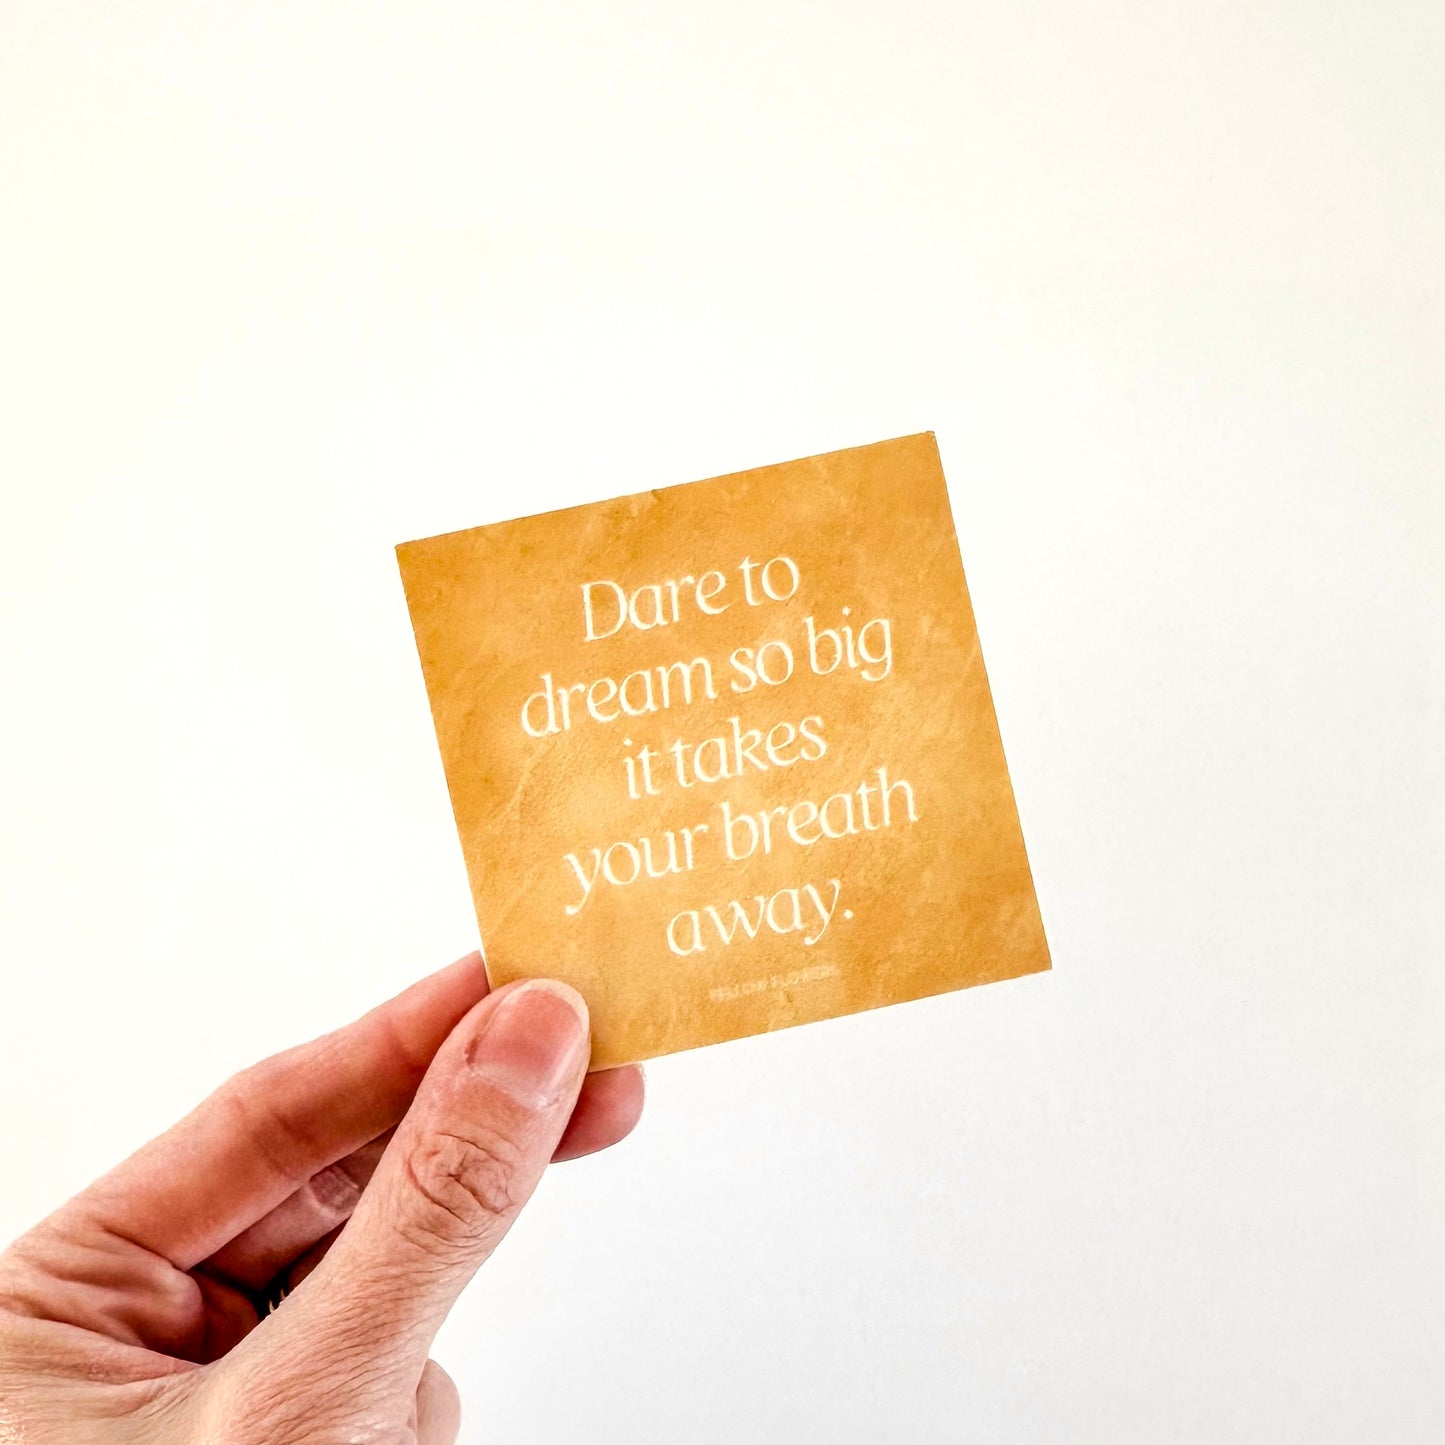 Dare to
dream so big
it takes
your breath
away.